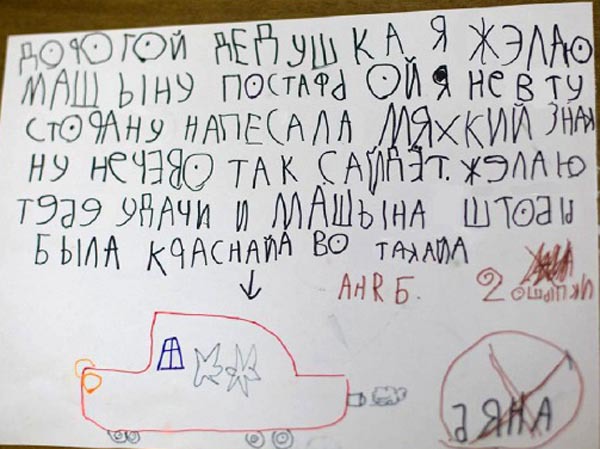 ДОРОГОЙ ДЕДУШКА Я ЖЭЛАЮ
МАШЫНУ ПОСТАРЬ ОЙ Я НЕ В ТУ
СТОРАНУ НАПЕСАЛА МЯХКИЙ ЗНАК
НУ НЕЧЕВО ТАК САЙДЁТ. ЖЭЛАЮ
ТЕБЕ УДАЧИ И МАШЫНА ШТОБЫ
БЫЛА КРАСНАЙА ВО ТАКАЙА
АНЯ Б.
2 ОШЫПКИ
ЬЯНА